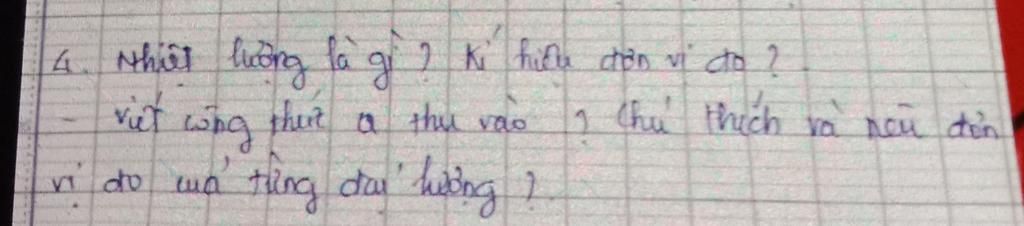 4. Nhiệt lường là gì? Kí hiệu đơn vị đo?
- viết công thức Q thu vào? Chú thích và nêu đơn
vị đo của từng đại lượng?